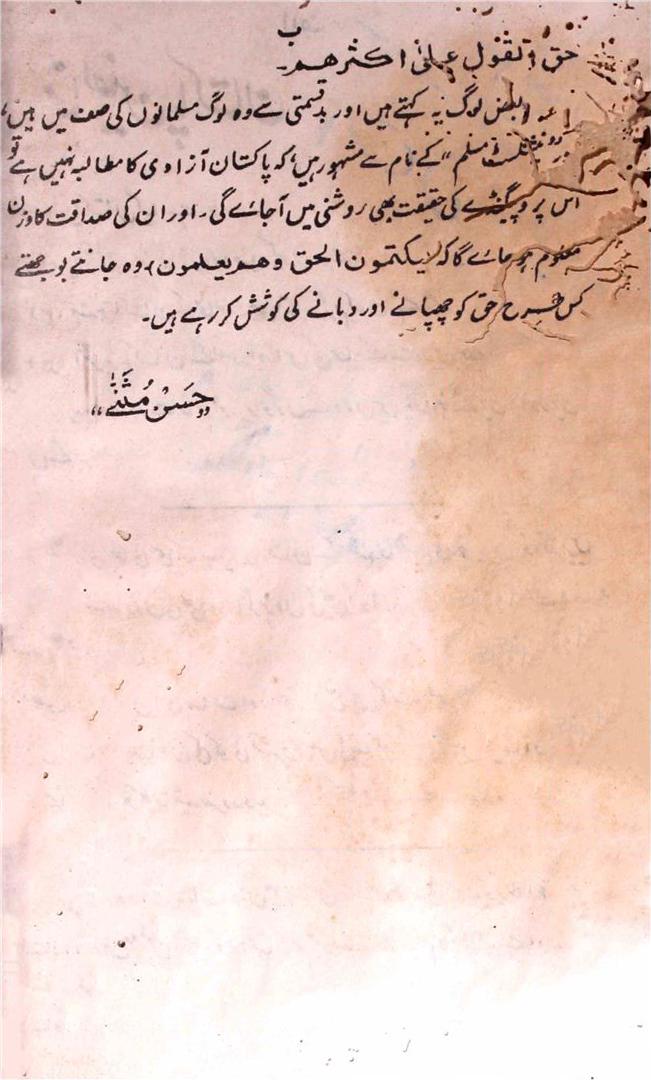 ب
حق القول علیٰ اکثرھم۔
اور بعض لوگ یہ کہتے ہیں اور بدقسمتی سے وہ لوگ مسلمانوں کی صف میں ہیں،
"نیشنلسٹ مسلم" کے نام سے مشہور ہیں، کہ پاکستان آزادی کا مطالبہ نہیں ہے تو
اس پروپیگنڈے کی حقیقت بھی روشنی میں آجائے گی۔ اور ان کی صداقت کا وزن
معلوم ہوجائے گا کہ لایکتمون الحق وھم یعلمون، وہ جانتے بوجھتے
کس طرح حق کو چھپانے اور دبانے کی کوشش کر رہے ہیں۔
"حَسَنْ مُثَنّٰے"